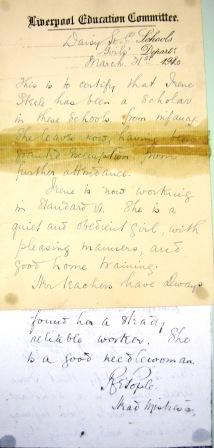 Liverpool Education Committee.
Daisy St. C. Schools
Girls' Depart.
March 31st 1910.
This is to certify that Irene
has been a Scholar
in these Schools from infancy.
She leaves now, having been
granted exemption from
further attendance.
Irene is now working
in Standard VI. She is a
quiet and obedient girl, with
pleasing manners, and
good home training.
Her teachers have always
found her a steady,
reliable worker. She
is a good needlewoman.
Head Mistress